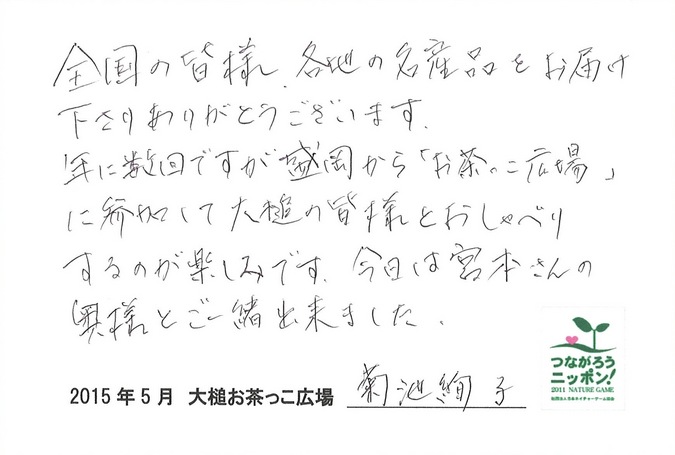 全国の皆様、各地の名産品をお届け
下さりありがとうございます。
年に数回ですが盛岡から「お茶っこ広場」
に参加して大槌の皆様とおしゃべり
するのが楽しみです。今日は宮本さんの
奥様とご一緒出来ました。
2015年5月 大槌お茶っこ広場 菊池絢子
つながろう
ニッポン!
2011 NATURE GAME
社団法人日本ネイチャーゲーム協会